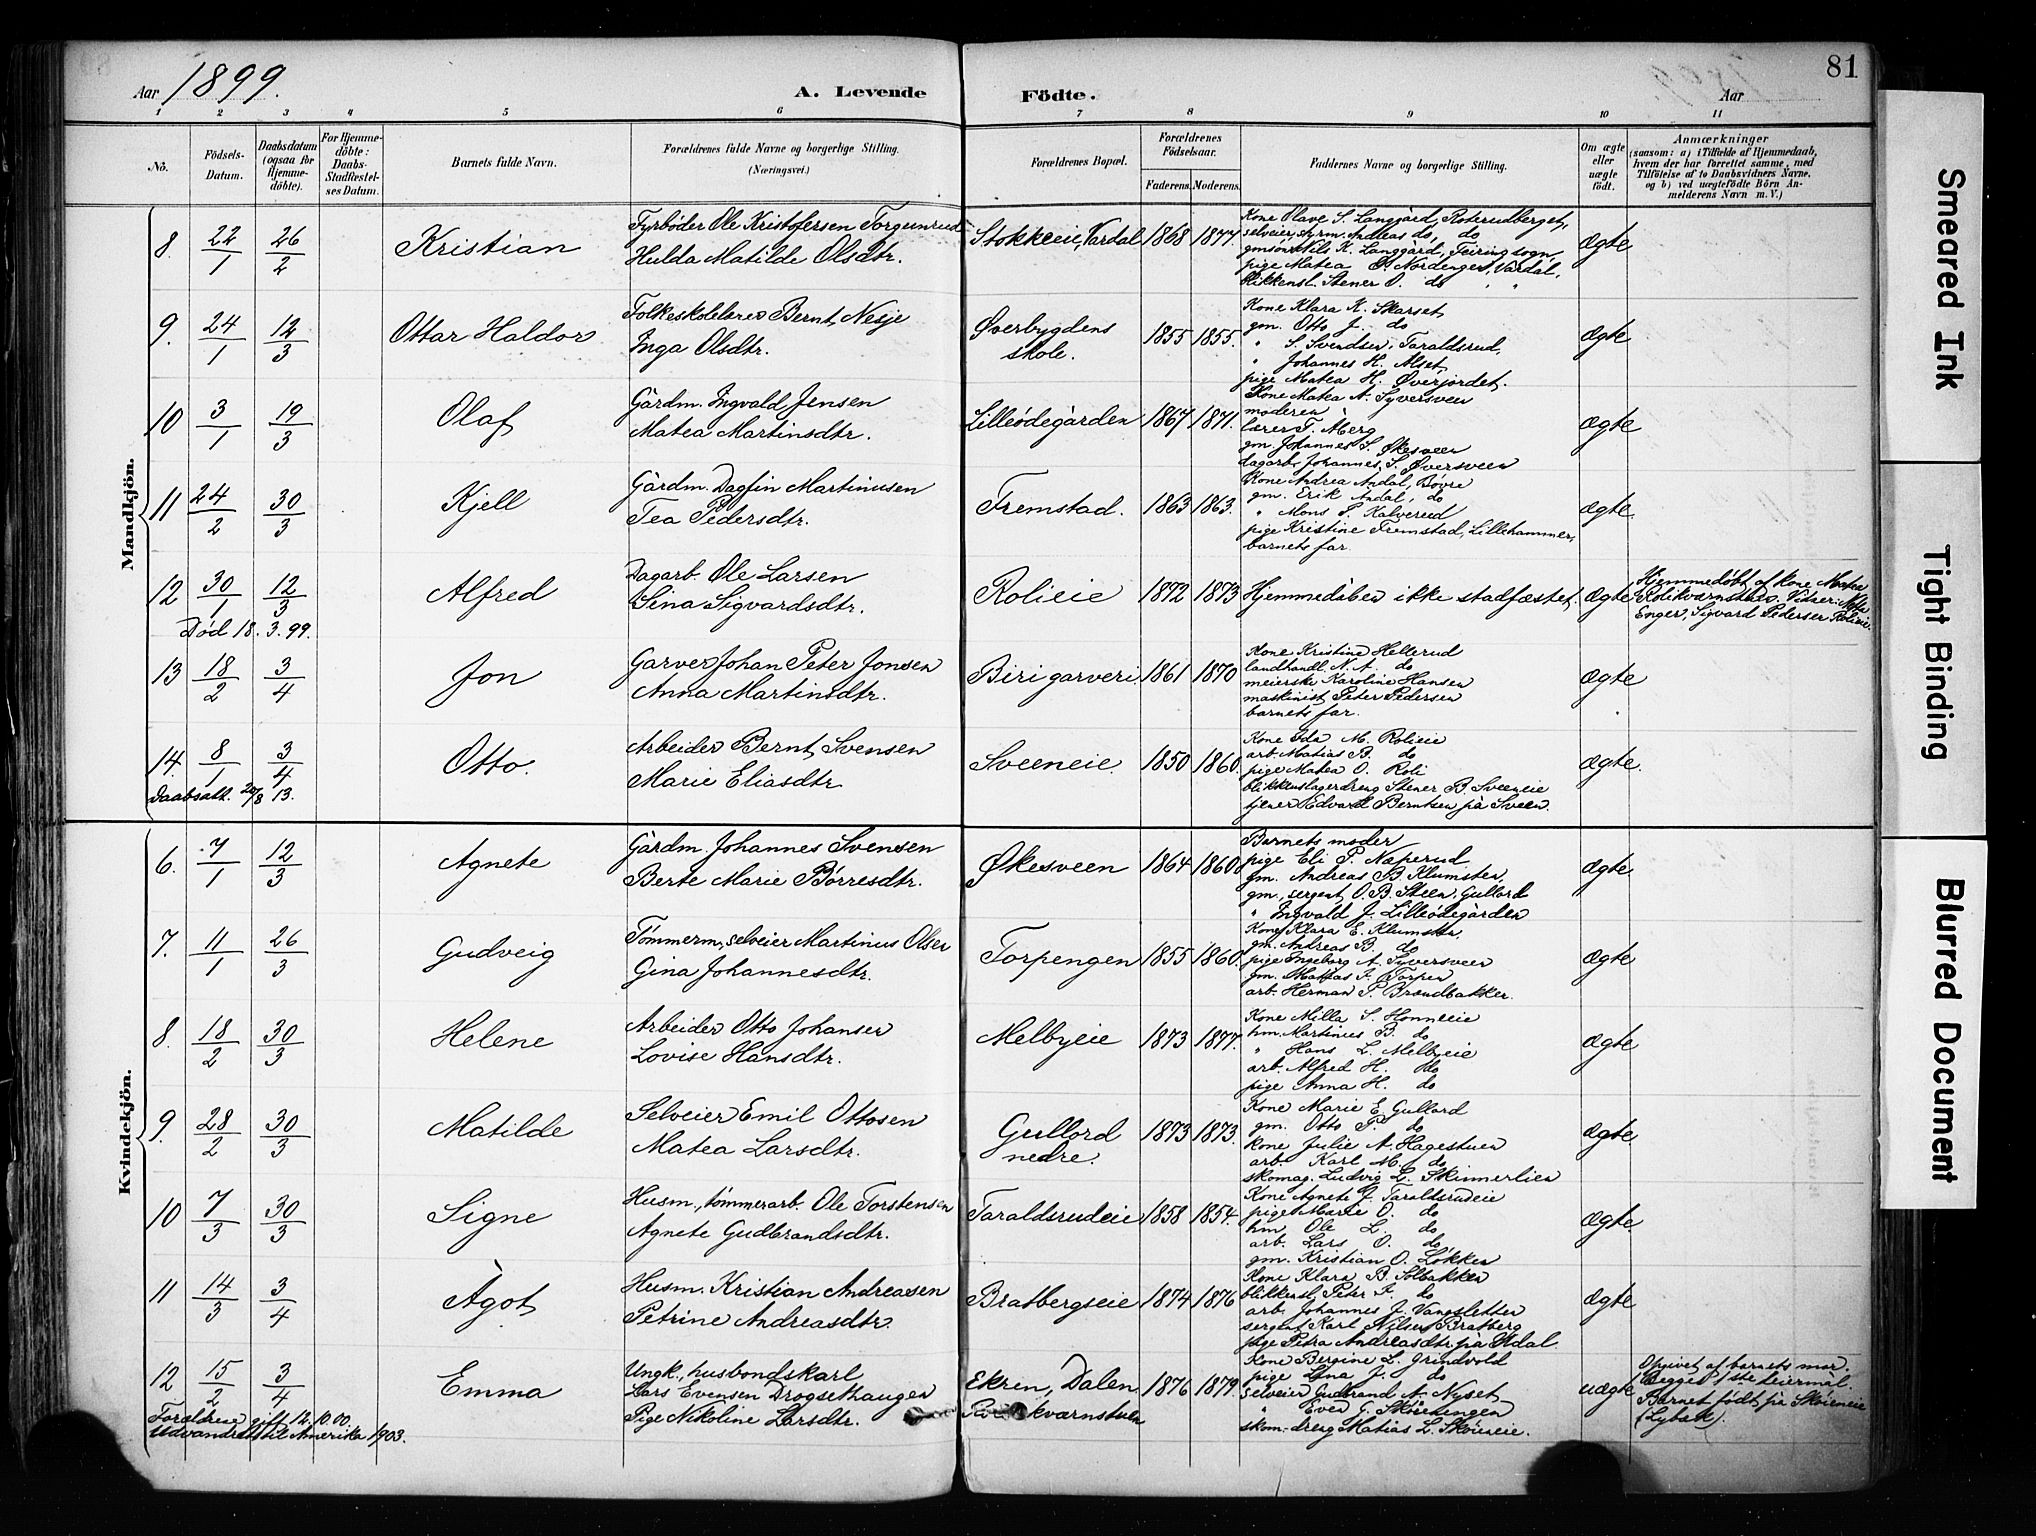 Aar 1899.
A. Levende Födte.
Aar
81
1 2 3 4 5 6 7 8 9 10 11
No.
Födsels-Datum.
Daabsdatum (ogsaa for Hjemme-döbte).
For Hjemme-döbte: Daabs-Stadfæstel-ses Datum.
Barnets fulde Navn.
Forældrenes fulde Navne og borgerlige Stilling. (Næringsvei.)
Forældrenes Bopæl.
Forældrenes Födselsaar.
Faderens. Moderens.
Faddernes Navne og borgerlige Stilling.
Om ægte eller uægte födt.
Anmærkninger
(saasom: a) i Tilfælde af Hjemmedaab, hvem der har forrettet samme, med Tilföielse af to Daabsvidners Navne, og b) ved uægtefödte Börn An-melderens Navn m. V.)
Mandkjön.
8. 22/1 26/2 Kristian
Fyrbøder Ole Kristofersen Torgunrud
Hulda Matilde Olsdtr.
Stokkeeie, Vardal 1868 1877.
Kone Olave S. Langgård, Roterudberget,
selveier, Andreas do, do
gmsøn Nils K. Langgård, Feiring sogn
pige Matea O. Nordenger, Vardal,
blikkensl. Stener O. do " "
ægte
9. 24/1 12/3 Ottar Haldor
Folkeskolelærer Bernt Nesje
Inga Olsdtr.
Øverbygdens skole.
1855 1855.
Kone Klara K. Skarset
gm. Otto J. do
" S. Svendsen, Taraldsrud,
" Johannes H. Alset
pige Matea H. Øverjordet.
ægte
10 3/1 19/3 Olaf
Gårdm. Ingvald Jensen
Matea Martinsdtr.
Lilleødegården 1867 1871.
Kone Matea A. Syversveen
moderen
lærer T. Merg
gm. Johannes S. Økesveen
dagarb. Johannes S. Øversveen
ægte
11 24/2 30/3 Kjell
Gårdm. Dagfin Martinusen
Tea Pedersdtr.
Fremstad. 1863 1863.
Kone Andrea Andal, Bovre
gm. Erik Andal, do
" Mons P. Kalverud
pige Kristine Fremstad, Lillehammer,
barnets far.
ægte.
12 30/1 12/3 Alfred
Dagarb. Ole Larsen
Sina Sigvardsdtr.
Rolieie 1872 1873
Hjemmedåben ikke stadfæstet.
ægte
Hjemmedøbt af kone Matea
Rolikværnstuen. Vidner:
Enger, Sigvard Pedersen Rolieie.
Død 18. 3. 99.
13 18/2 3/4 Jon
Garver Johan Peter Jonsen
Anna Martinsdtr.
Biri garveri 1861 1870
Kone Kristine Hellerud
landhandl. N. A. do
meierske Karoline Hansen
maskinist Peter Pedersen
barnets far.
ægte
14. 8/1 3/4 Otto.
Arbeider Bernt Svensen
Marie Eliasdtr
Sveeneie. 1850 1860.
Kone Ida M. Rolieie
arb. Matias B. do
pige Matea O. Roli
blikkenslagerdreng Stener B. Sveeneie
tjener Edvard Berntsen på Sveen.
ægte.
Daabsatt. 20/8 13.
Kvindekjön.
6. 7/1 12/3 Agnete
Gårdm. Johannes Svensen
Berte Marie Børresdtr.
Økesveen 1864 1860
Barnets moder
pige Eli P. Næperud
gm. Andreas B. Klumsten
gm., sergent O. B. Steen, Gullord
" Ingvald J. Lilleødegården
ægte
7. 11/1 26/3 Gudveig
Tømmerm., selveier Martinus Olsen
Gina Johannesdtr.
Torpengen 1855 1860.
Kone Klara E. Klumsten,
gm. Andreas B. do
pige Ingeborg A. Syversveen
gm. Mattias F. Torpen
arb. Herman P. Brændbakken.
ægte
8. 18/2 30/3 Helene
Arbeider Otto Johansen
Lovise Hansdtr.
Melbyeie 1873 1877.
Kone Milla S. Honneeie
hm. Martinus B. do
" Hans L. Melbyeie
arb. Alfred H. do
pige Anna H. do
ægte
9. 28/2 30/3 Matilde
Selveier Emil Ottosen
Matea Larsdtr.
Gullord nedre.
1873 1873.
Kone Marie E. Gullord
gm. Otto P. do
kone Julie A. Hagestuen
arb. Karl M. do
skomag. Ludvig L. Skinnerlien
ægte.
10 7/3 30/3 Signe
Husm., tømmerarb. Ole Torstensen
Agnete Gudbrandsdtr.
Taraldsrudeie 1858 1854.
Kone Agnete J. Taraldsrudeie
pige Marie O. do
hm Ole L. do
arb. Lars O. do
gm. Kristian O. Løkken
ægte.
11 14/3 3/4 Ågot
Husm. Kristian Andreassen
Petrine Andreasdtr.
Bratbergseie 1874 1876
Kone Klara B. Solbakken
blikkensl. Peter F. do
arb. Johannes J. Vangsletten
sergent Karl Nilsen Bratberg
pige Petra Andreasdtr. på Udal.
ægte
12 15/2 3/4 Emma
Ungk., husbondskarl
Lars Evensen Drogsethaugen
Pige Nikoline Larsdtr.
Ekren, Dalen
kværnstuen
1876 1879.
Kone Bergine L. Grindvold
pige Lina J. do
selveier Gudbrand A. Nyset
" Even J. Skøienengen
skom. dreng Matias L. Skøieneie.
uægte
Opgivet af barnets mor.
Begges 1ste leiermål.
Barnet født på Skøieneie
(Lybæk).
Forældrene gift 12.10.00.
Udvandret til Amerika 1903.
Smeared Ink
Tight Binding
Blurred Document